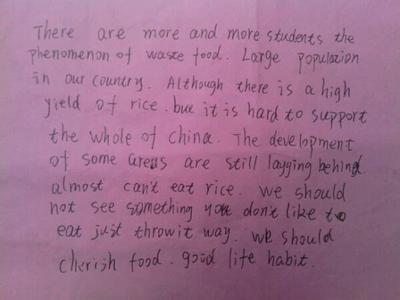 There are more and more students the
phenomenon of waste food. Large population
in our country. Although there is a high
yield of rice. but it is hard to support
the whole of China. The development
of some areas are still laying behind
almost can't eat rice. we should
not see something you don't like to
eat just throw it way. we should
cherish food. good life habit.